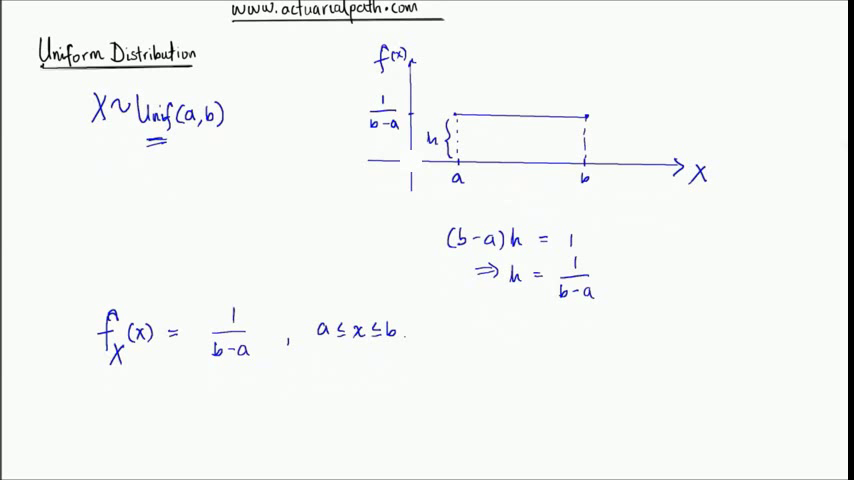 www.actuarialpath.com
Uniform Distribution
X ~ Unif(a,b)
f(x)
1/(b-a)
h {
a
b
X
(b-a)h = 1
⇒ h = 1/(b-a)
f_X(x) = 1/(b-a) , a ≤ x ≤ b.